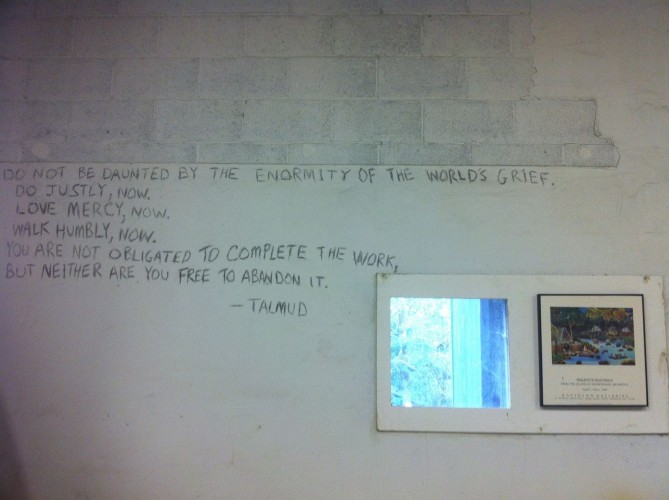 DO NOT BE DAUNTED BY THE ENORMITY OF THE WORLD'S GRIEF.
DO JUSTLY, NOW.
LOVE MERCY, NOW.
WALK HUMBLY, NOW.
YOU ARE NOT OBLIGATED TO COMPLETE THE WORK,
BUT NEITHER ARE YOU FREE TO ABANDON IT.
— TALMUD